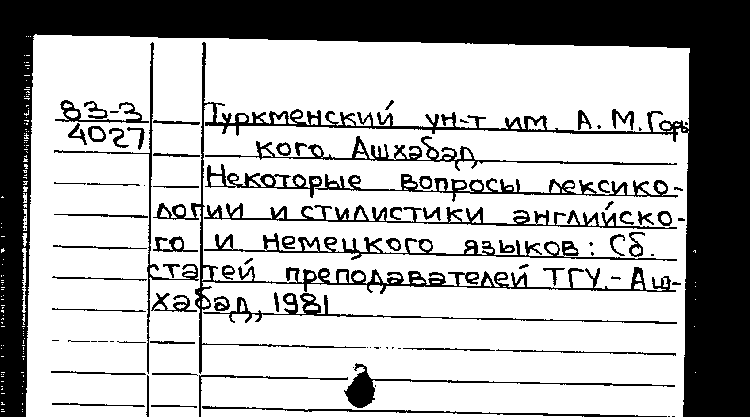 83-3 Туркменский ун-т им. А.М.Горь
4027 кого. Ашхабад.
Некоторые вопросы лексико-
логии и стилистики английско-
го и немецкого языков: Сб.
статей преподавателей ТГУ.- Аш-
хабад, 1981